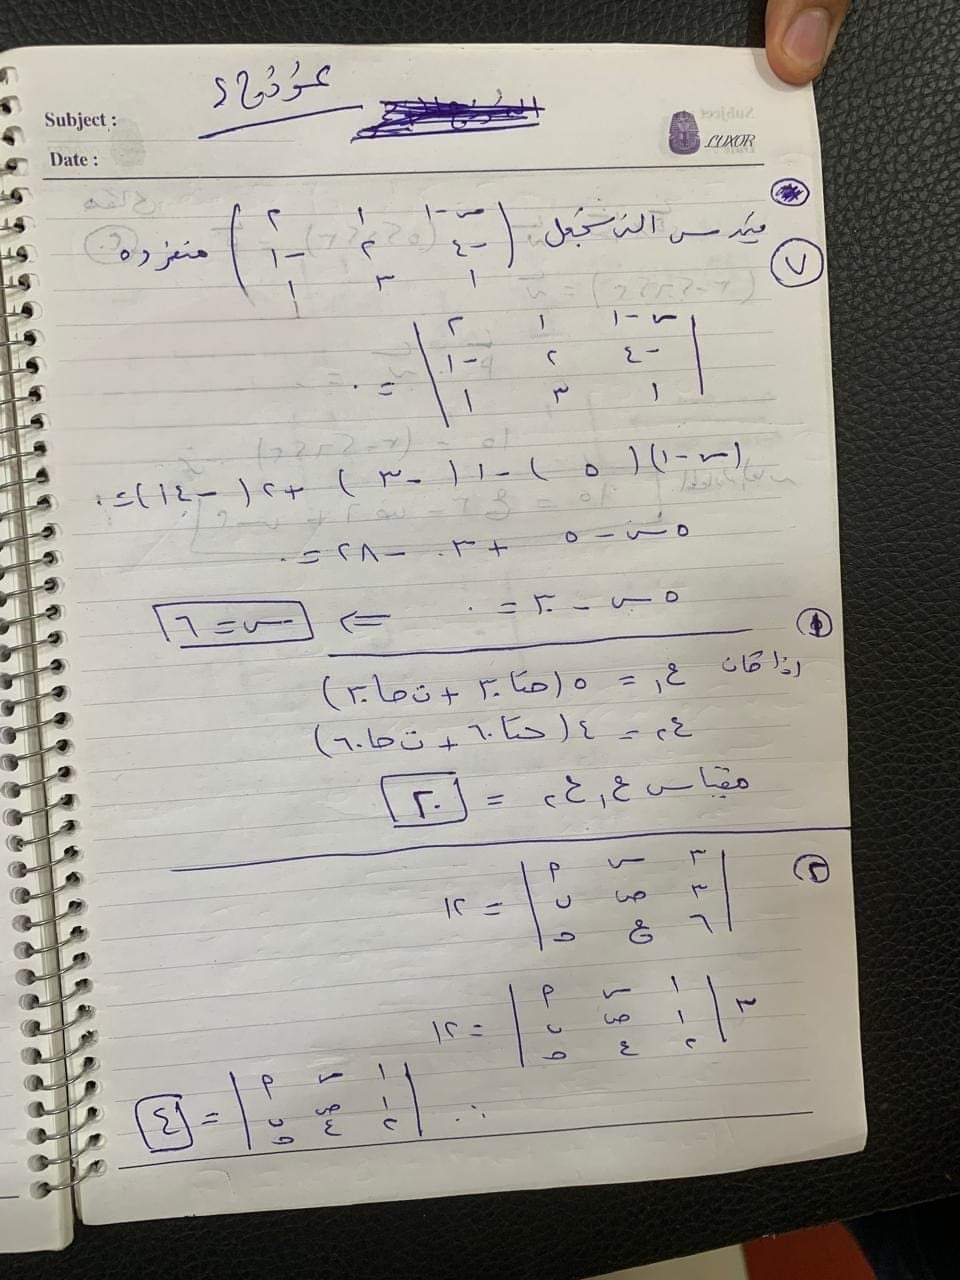 نموذج د
Subject :
Date :
LUXOR
٧
قيمة س التى تجعل ( س-١ ١ ٢
-٤ ٢ -١
١ ٣ ١ ) منفرده
| س-١ ١ ٢
-٤ ٢ -١
١ ٣ ١ | = ٠
(س-١)( ٥ ) -١( -٣ ) +٢( -١٤)=٠
٥س - ٥ + ٣ - ٢٨ = ٠
٥س - ٣٠ = ٠ ⇐ س = ٦
١
اذا كان ع١ = ٥ (حتا٣٠ + ت حا٣٠)
ع٢ = ٤ (حتا٦٠ + ت حا٦٠)
مقياس ع١ ع٢ = ٢٠
٢
| ٣ س م
٣ ص ب
٦ ع ه | = ١٢
٣ | ١ س م
١ ص ب
٢ ع ه | = ١٢
∴ | ١ س م
١ ص ب
٢ ع ه | = ٤